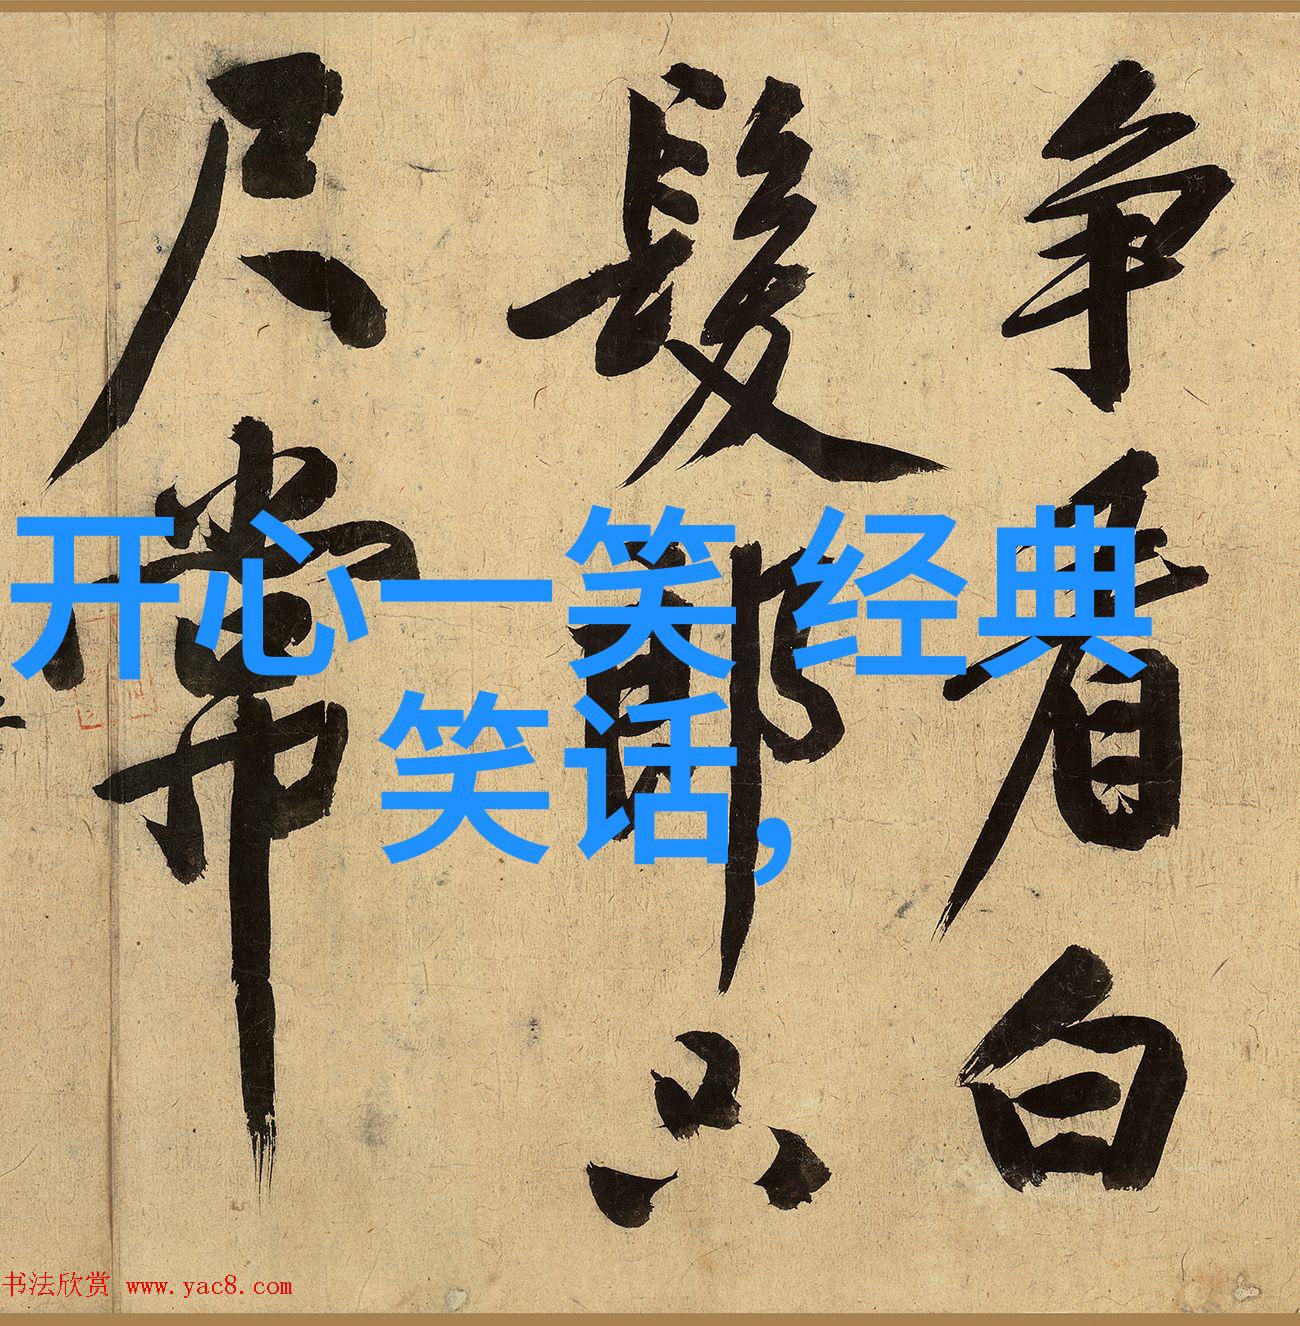 开心一笑 经典
笑话,
争看白
髮郎只
尺常
书法欣赏 www.yac8.com